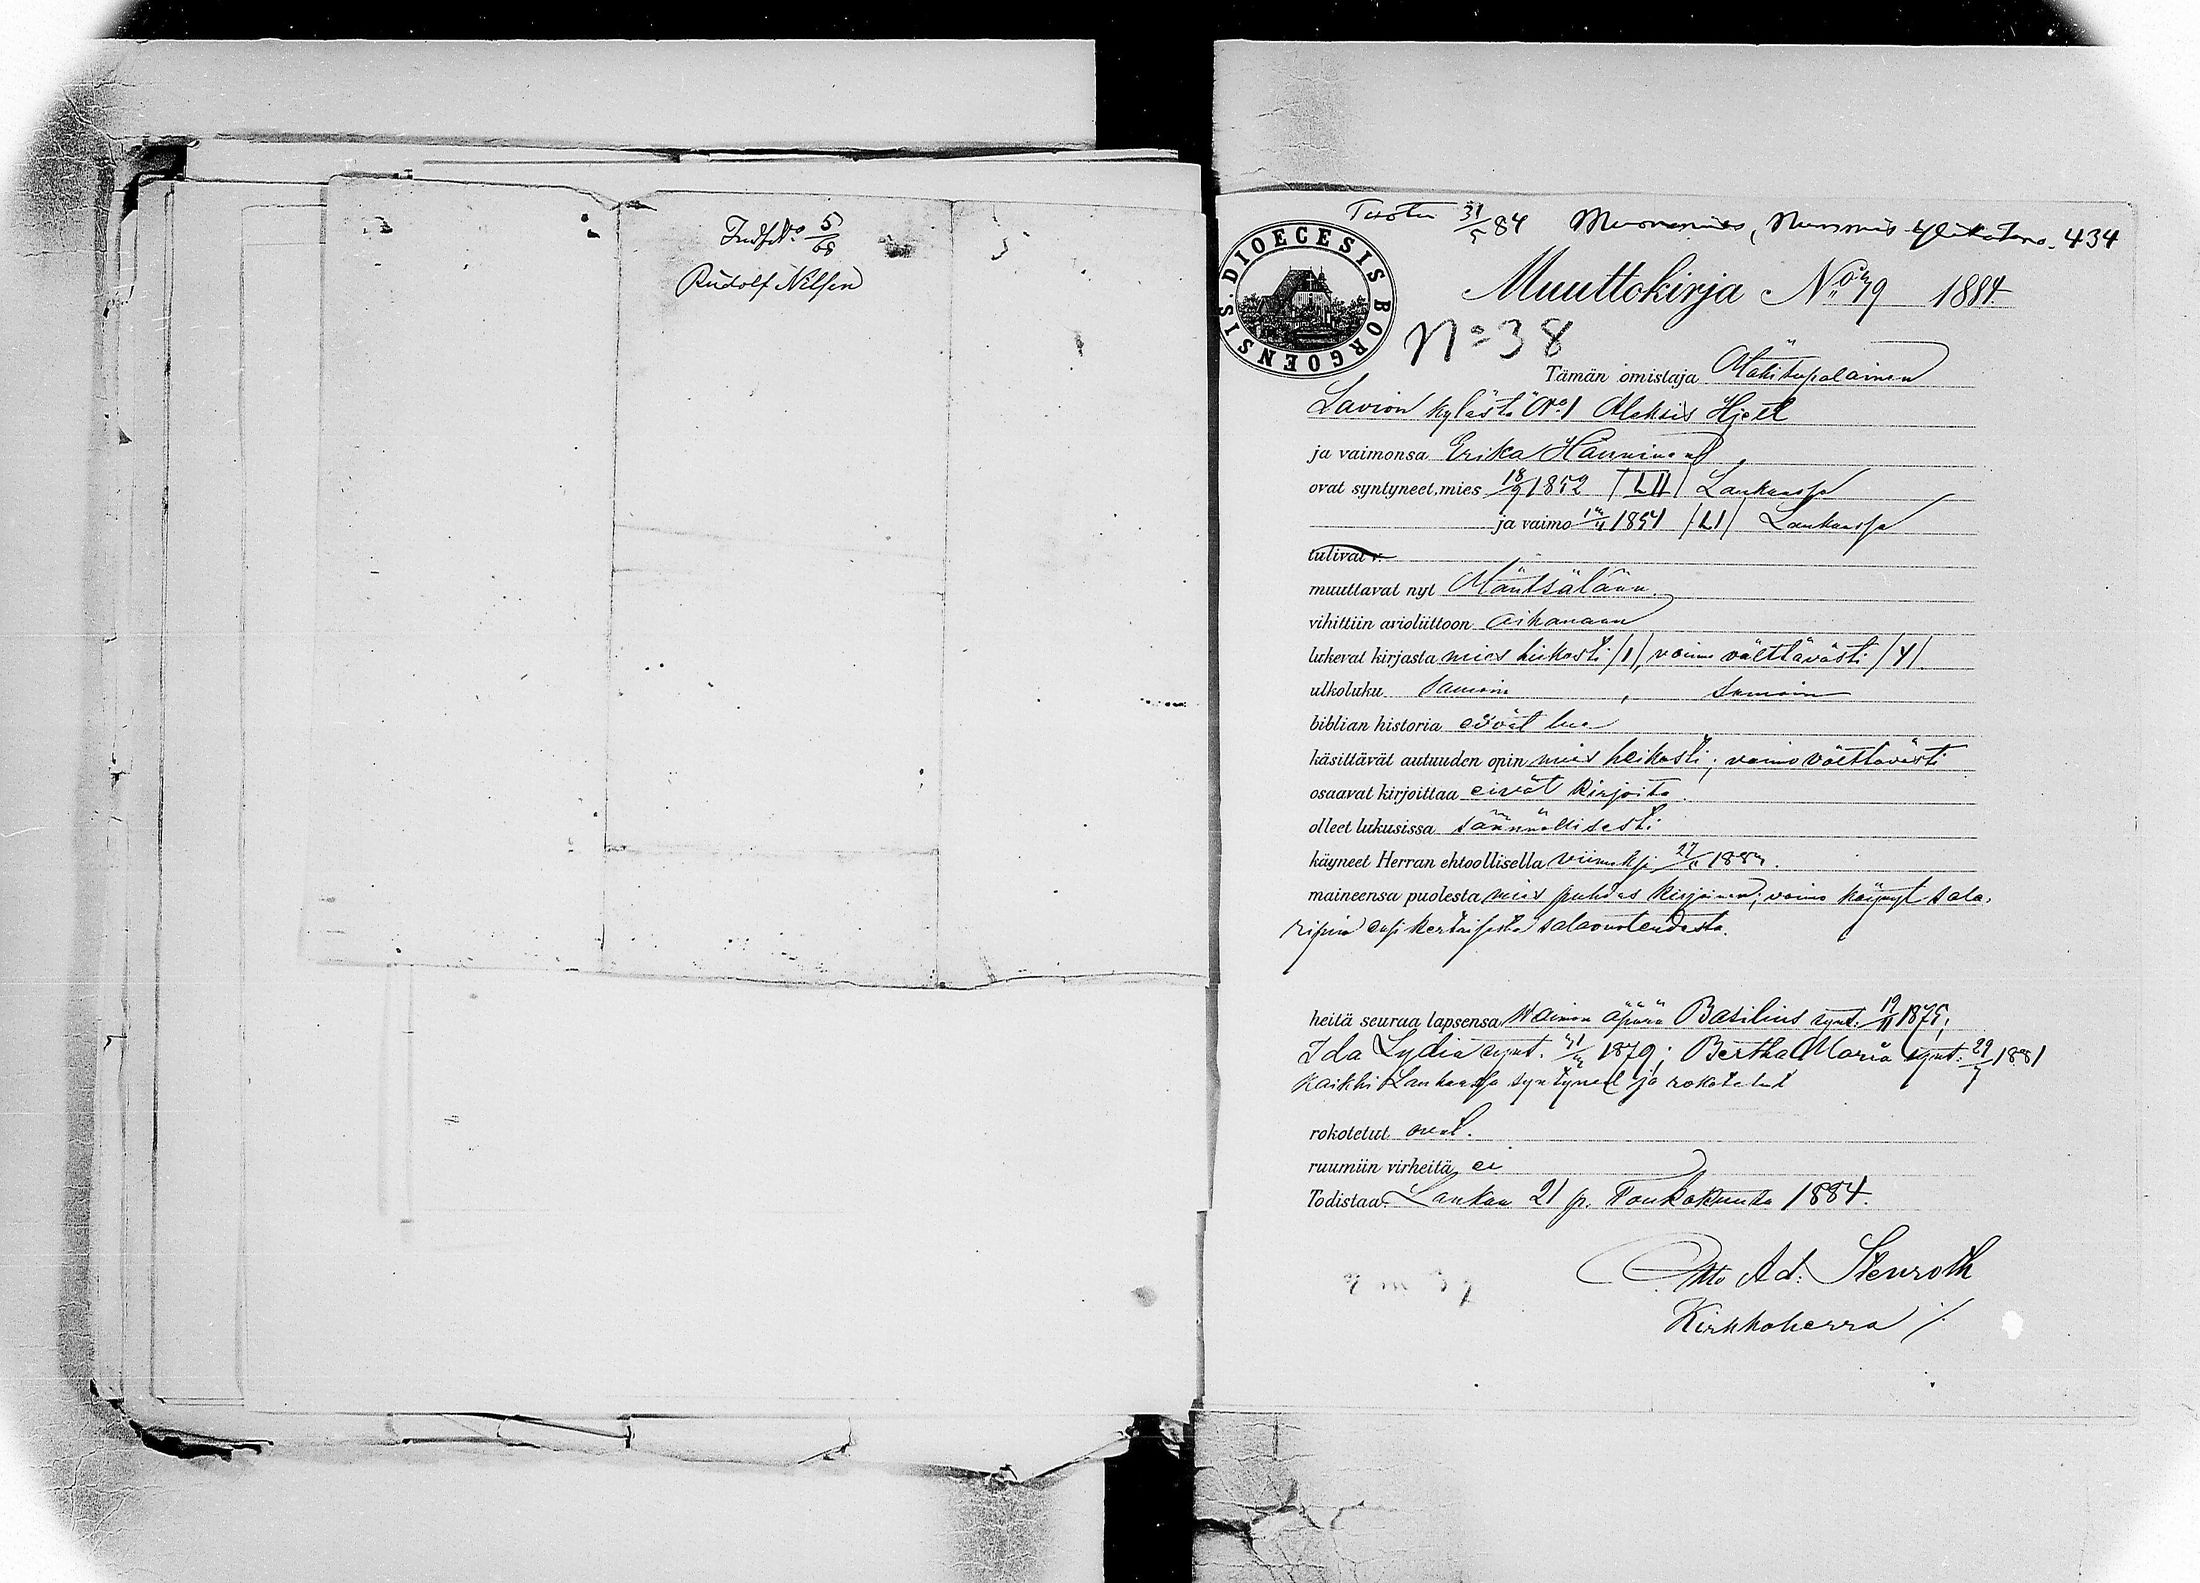 Rudolf Nilsen
31/5 84
434
DIOECESIS BORGOENSIS.
Muuttokirja No 1884.
No 38
Tämän omistaja Mäkitupalainen
Lavion kylästä No 1 Aleksis Hjelt
ja vaimonsa Erika Hanninen
ovat syntyneet, mies 18/9 1852 /LII/ Laukaassa
ja vaimo 1851 /LI/ Laukaassa
tulivat
muuttavat nyt Mäntsälään.
vihittiin avioliittoon aikanaan
lukevat kirjasta mies heikosti /1/, vaimo välttävästi /Y/
ulkoluku samoin, samoin
biblian historia eivät lue
käsittävät autuuden opin mies heikosti; vaimo välttävästi
osaavat kirjoittaa eivät kirjoita.
olleet lukusissa säännöllisesti
käyneet Herran ehtoollisella viimeksi
maineensa puolesta mies puhdas kirjainen; vaimo käynyt sala-
ripin salavuoteudesta.
heitä seuraa lapsensa Waimon äpärä Basilius synt. 19/11 1875;
Ida Lydia synt. 1879; Bertha Maria synt. 29/7 1881
kaikki Laukaassa syntyneet ja rokotetut
rokotetut ovat.
ruumiin virheitä ei
Todistaa. Laukaa 21 p. Toukokuuta 1884.
Otto Ad: Stenroth
Kirkkoherra